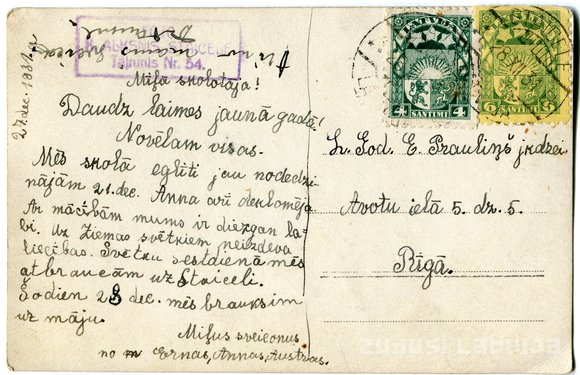 27. dec. 1931. g
ALŪKSNIS STAICELE
Tālrunis Nr. 54.
Mīļā skolotāja!
Daudz laimes jaunā gadā!
Novēlam visas.
Mēs skolā eglīti jau nodedzi
nājām 21. dec. Anna arī deklomēja
Ar mācībām mums ir diezgan la-
bi. Uz Ziemas svētkiem neizdeva
liecības. Svētku sestdienā mēs
atbraucām uz Staiceli.
Šodien 28 dec. mēs brauksim
uz māju.
Mīļus sveicenus
no Ernas, Annas, Austras.
LATVIJA
4 4
SANTIMI
LATVIJA
6 6
SANTIMI
L. God. E. Prauliņš jkdzei
Avotu ielā 5. dz. 5.
Rīgā.
ZUDUSI LATVIJA